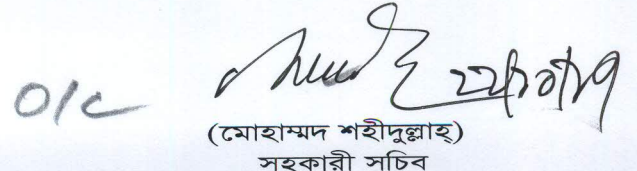 O/C
(মোহাম্মদ শহীদুল্লাহ্)
সহকারী সচিব